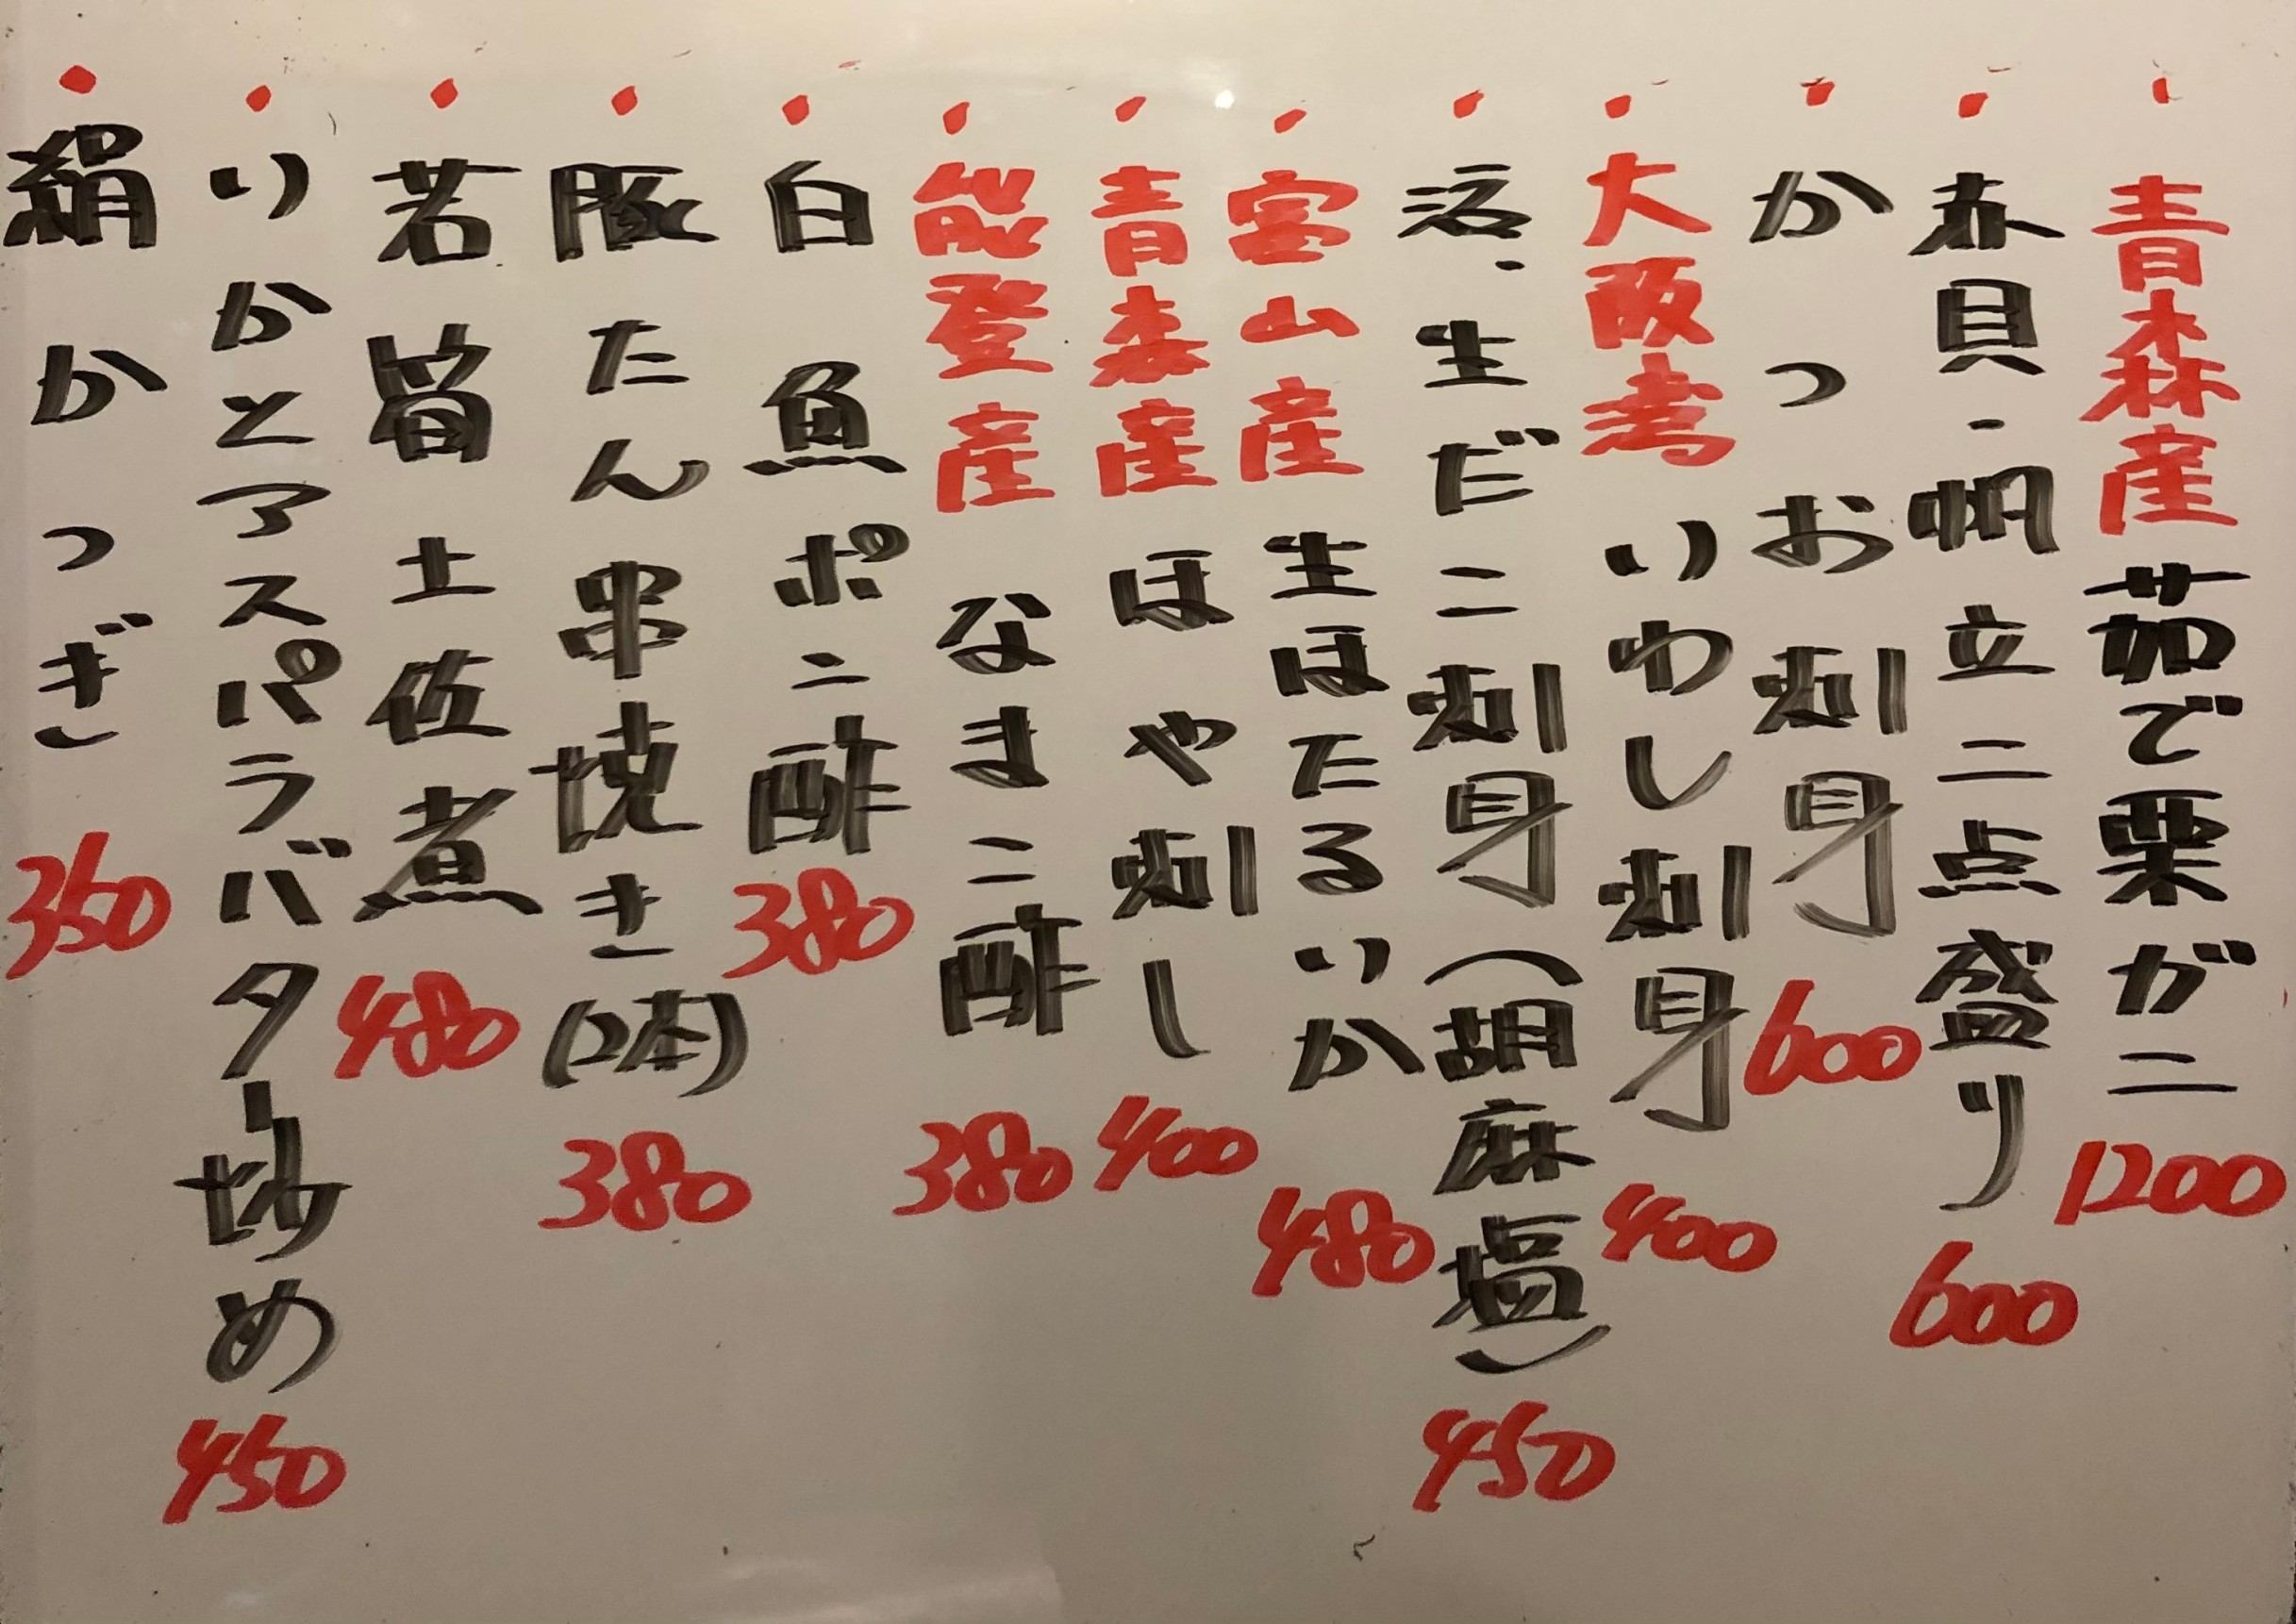 ・青森産茹で栗ガニ 1200
・赤貝・帆立二点盛り 600
・かつお刺身 600
・大阪 いわし刺身 400
・活・生だこ刺身(胡麻塩) 450
・富山産生ほたるいか 480
・青森産ほや刺し 400
・能登産なまこ酢 380
・白魚ポン酢 380
・豚たん串焼き(2本) 380
・若筍土佐煮 480
・いかとアスパラバター炒め 450
・絹かつぎ 350